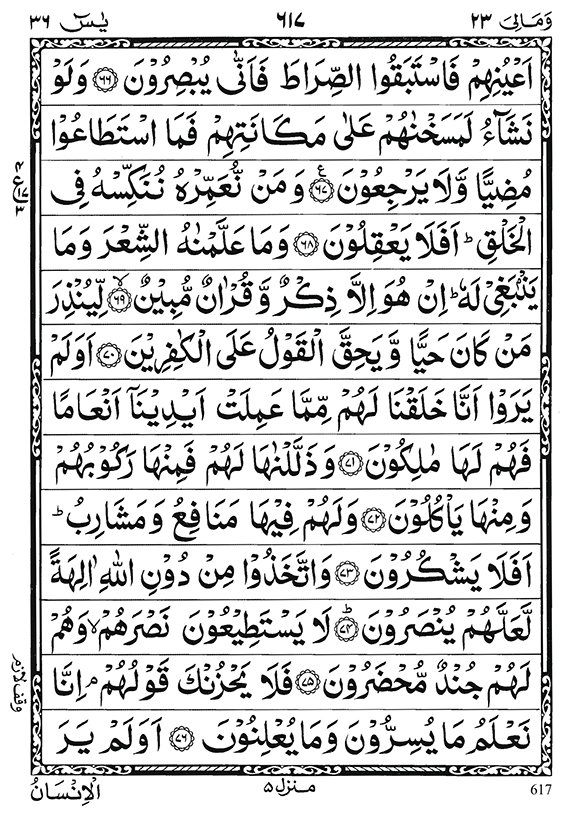 وَمَالِیَ ٢٣ ٦١٧ یٰسٓ ٣٦
اَعْیُنِهِمْ فَاسْتَبَقُوا الصِّرَاطَ فَاَنّٰی یُبْصِرُوْنَ ﴿٦٦﴾ وَلَوْ
نَشَآءُ لَمَسَخْنٰهُمْ عَلٰی مَکَانَتِهِمْ فَمَا اسْتَطَاعُوْا
مُضِیًّا وَّلَا یَرْجِعُوْنَ ﴿٦٧﴾ ع وَمَنْ نُّعَمِّرْهُ نُنَکِّسْهُ فِی
الْخَلْقِ ؕ اَفَلَا یَعْقِلُوْنَ ﴿٦٨﴾ وَمَا عَلَّمْنٰهُ الشِّعْرَ وَمَا
یَنْۢبَغِیْ لَهٗ ؕ اِنْ هُوَ اِلَّا ذِکْرٌ وَّقُرْاٰنٌ مُّبِیْنٌ ﴿٦٩﴾ ۙ لِّیُنْذِرَ
مَنْ کَانَ حَیًّا وَّیَحِقَّ الْقَوْلُ عَلَی الْکٰفِرِیْنَ ﴿٧٠﴾ اَوَلَمْ
یَرَوْا اَنَّا خَلَقْنَا لَهُمْ مِّمَّا عَمِلَتْ اَیْدِیْنَاۤ اَنْعَامًا
فَهُمْ لَهَا مٰلِکُوْنَ ﴿٧١﴾ وَذَلَّلْنٰهَا لَهُمْ فَمِنْهَا رَکُوْبُهُمْ
وَمِنْهَا یَاْکُلُوْنَ ﴿٧٢﴾ وَلَهُمْ فِیْهَا مَنَافِعُ وَمَشَارِبُ ؕ
اَفَلَا یَشْکُرُوْنَ ﴿٧٣﴾ وَاتَّخَذُوْا مِنْ دُوْنِ اللّٰهِ اٰلِهَةً
لَّعَلَّهُمْ یُنْصَرُوْنَ ﴿٧٤﴾ ؕ لَا یَسْتَطِیْعُوْنَ نَصْرَهُمْ ۙ وَهُمْ
لَهُمْ جُنْدٌ مُّحْضَرُوْنَ ﴿٧٥﴾ فَلَا یَحْزُنْکَ قَوْلُهُمْ ۘ اِنَّا
وقف لازم
نَعْلَمُ مَا یُسِرُّوْنَ وَمَا یُعْلِنُوْنَ ﴿٧٦﴾ اَوَلَمْ یَرَ
617 منزل ۵ الْاِنْسَانُ